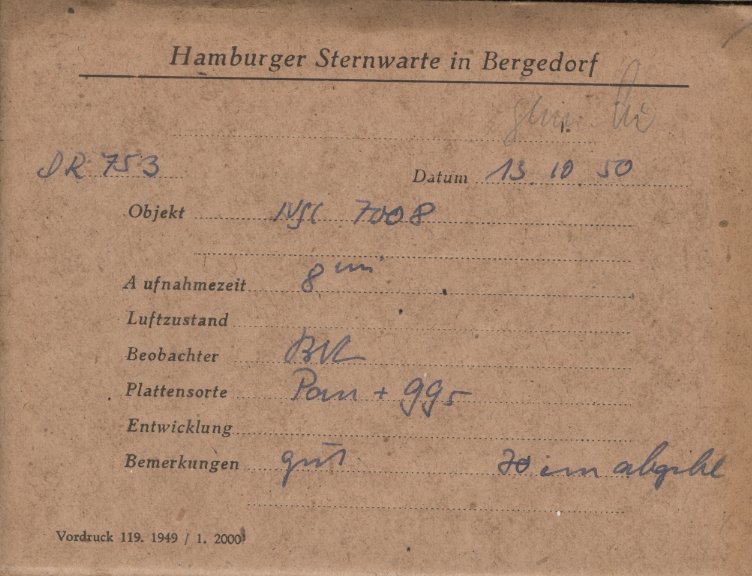 Hamburger Sternwarte in Bergedorf
DR 753
Datum 13. 10. 50
Objekt NGC 7008
Aufnahmezeit 8 m
Luftzustand
Beobachter
Plattensorte Pan + GG5
Entwicklung
Bemerkungen gut
Vordruck 119. 1949 / 1. 2000